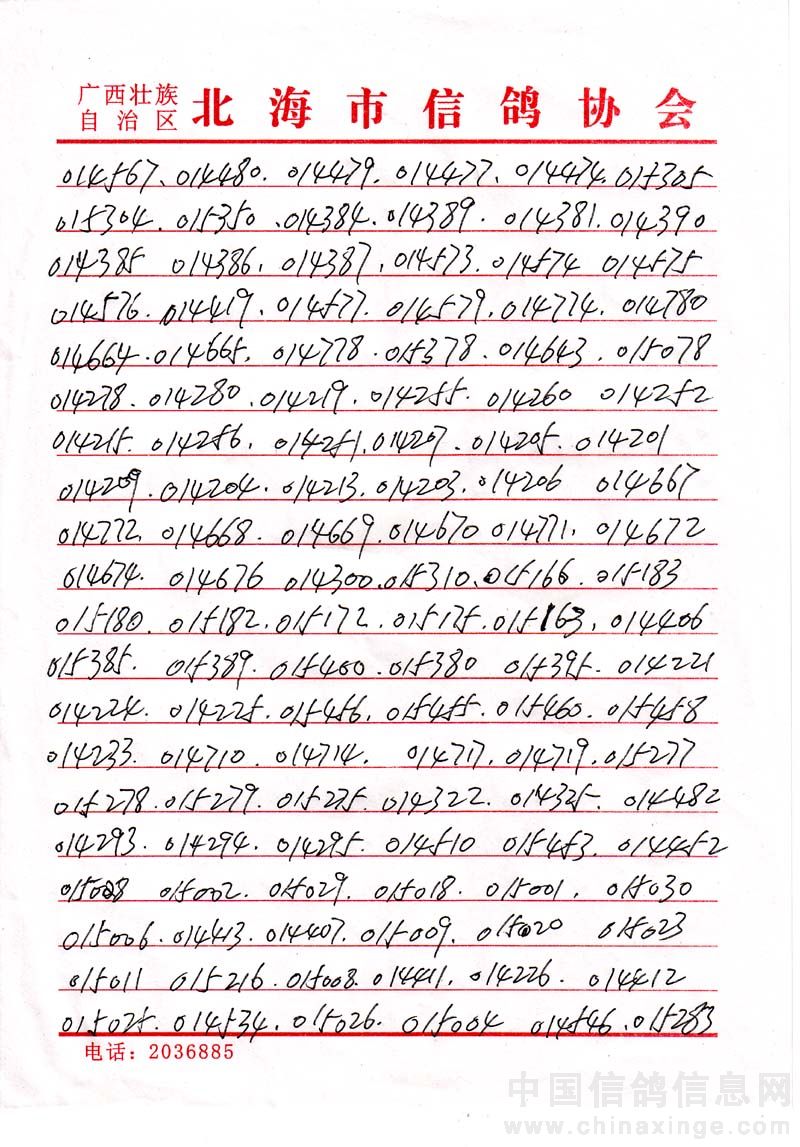 广西壮族
自治区 北海市信鸽协会
014567、014480. 014479. 014477、014474. 015305
015304. 015350 .014384.014389. 014381.014390
014385 014386. 014387,014573.014574 014575
014576. 014419.014577. 014579.014774. 014780
014664.014665. 014778.015378.014643. 015078
014278.014280.014219.014255. 014260 014252
014215. 014256. 014251.014207. 014205.014201
014209.014204.014213.014203.014206 014667
014772.014668. 014669.014670 014771. 014672
014674. 014676 014300.015310.015166.015183
015180. 015182.015172.015175.015163. 014406
015385. 015389.015400.015380 015395.014221
014224. 014225.015456. 015455.015460.015458
014233. 014710.014714. 014717.014719.015277
015278.015279.015275.014322. 014325. 014482
014293.014294.014295.014510 015453.014452
015028 015002.015029.015018. 015001. 015030
015006.014413.014407.015009. 015020 015023
015011 015216.015008.014441.014226. 014412
015025.014534.015026. 015004 014546.015283
电话：2036885
中国信鸽信息网
www.chinaxinge.com